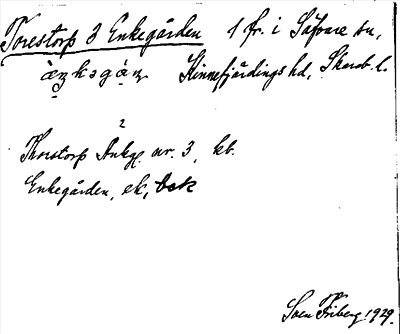 Torestorp 3 Enkegården 1 fr. i Säfvare sn,
Kinnefjärdings hd, Skarab. l.
2
Thorstorp Ankg nr. 3, kb.
Enkegården, ek, bek
Sven Friberg 1929.